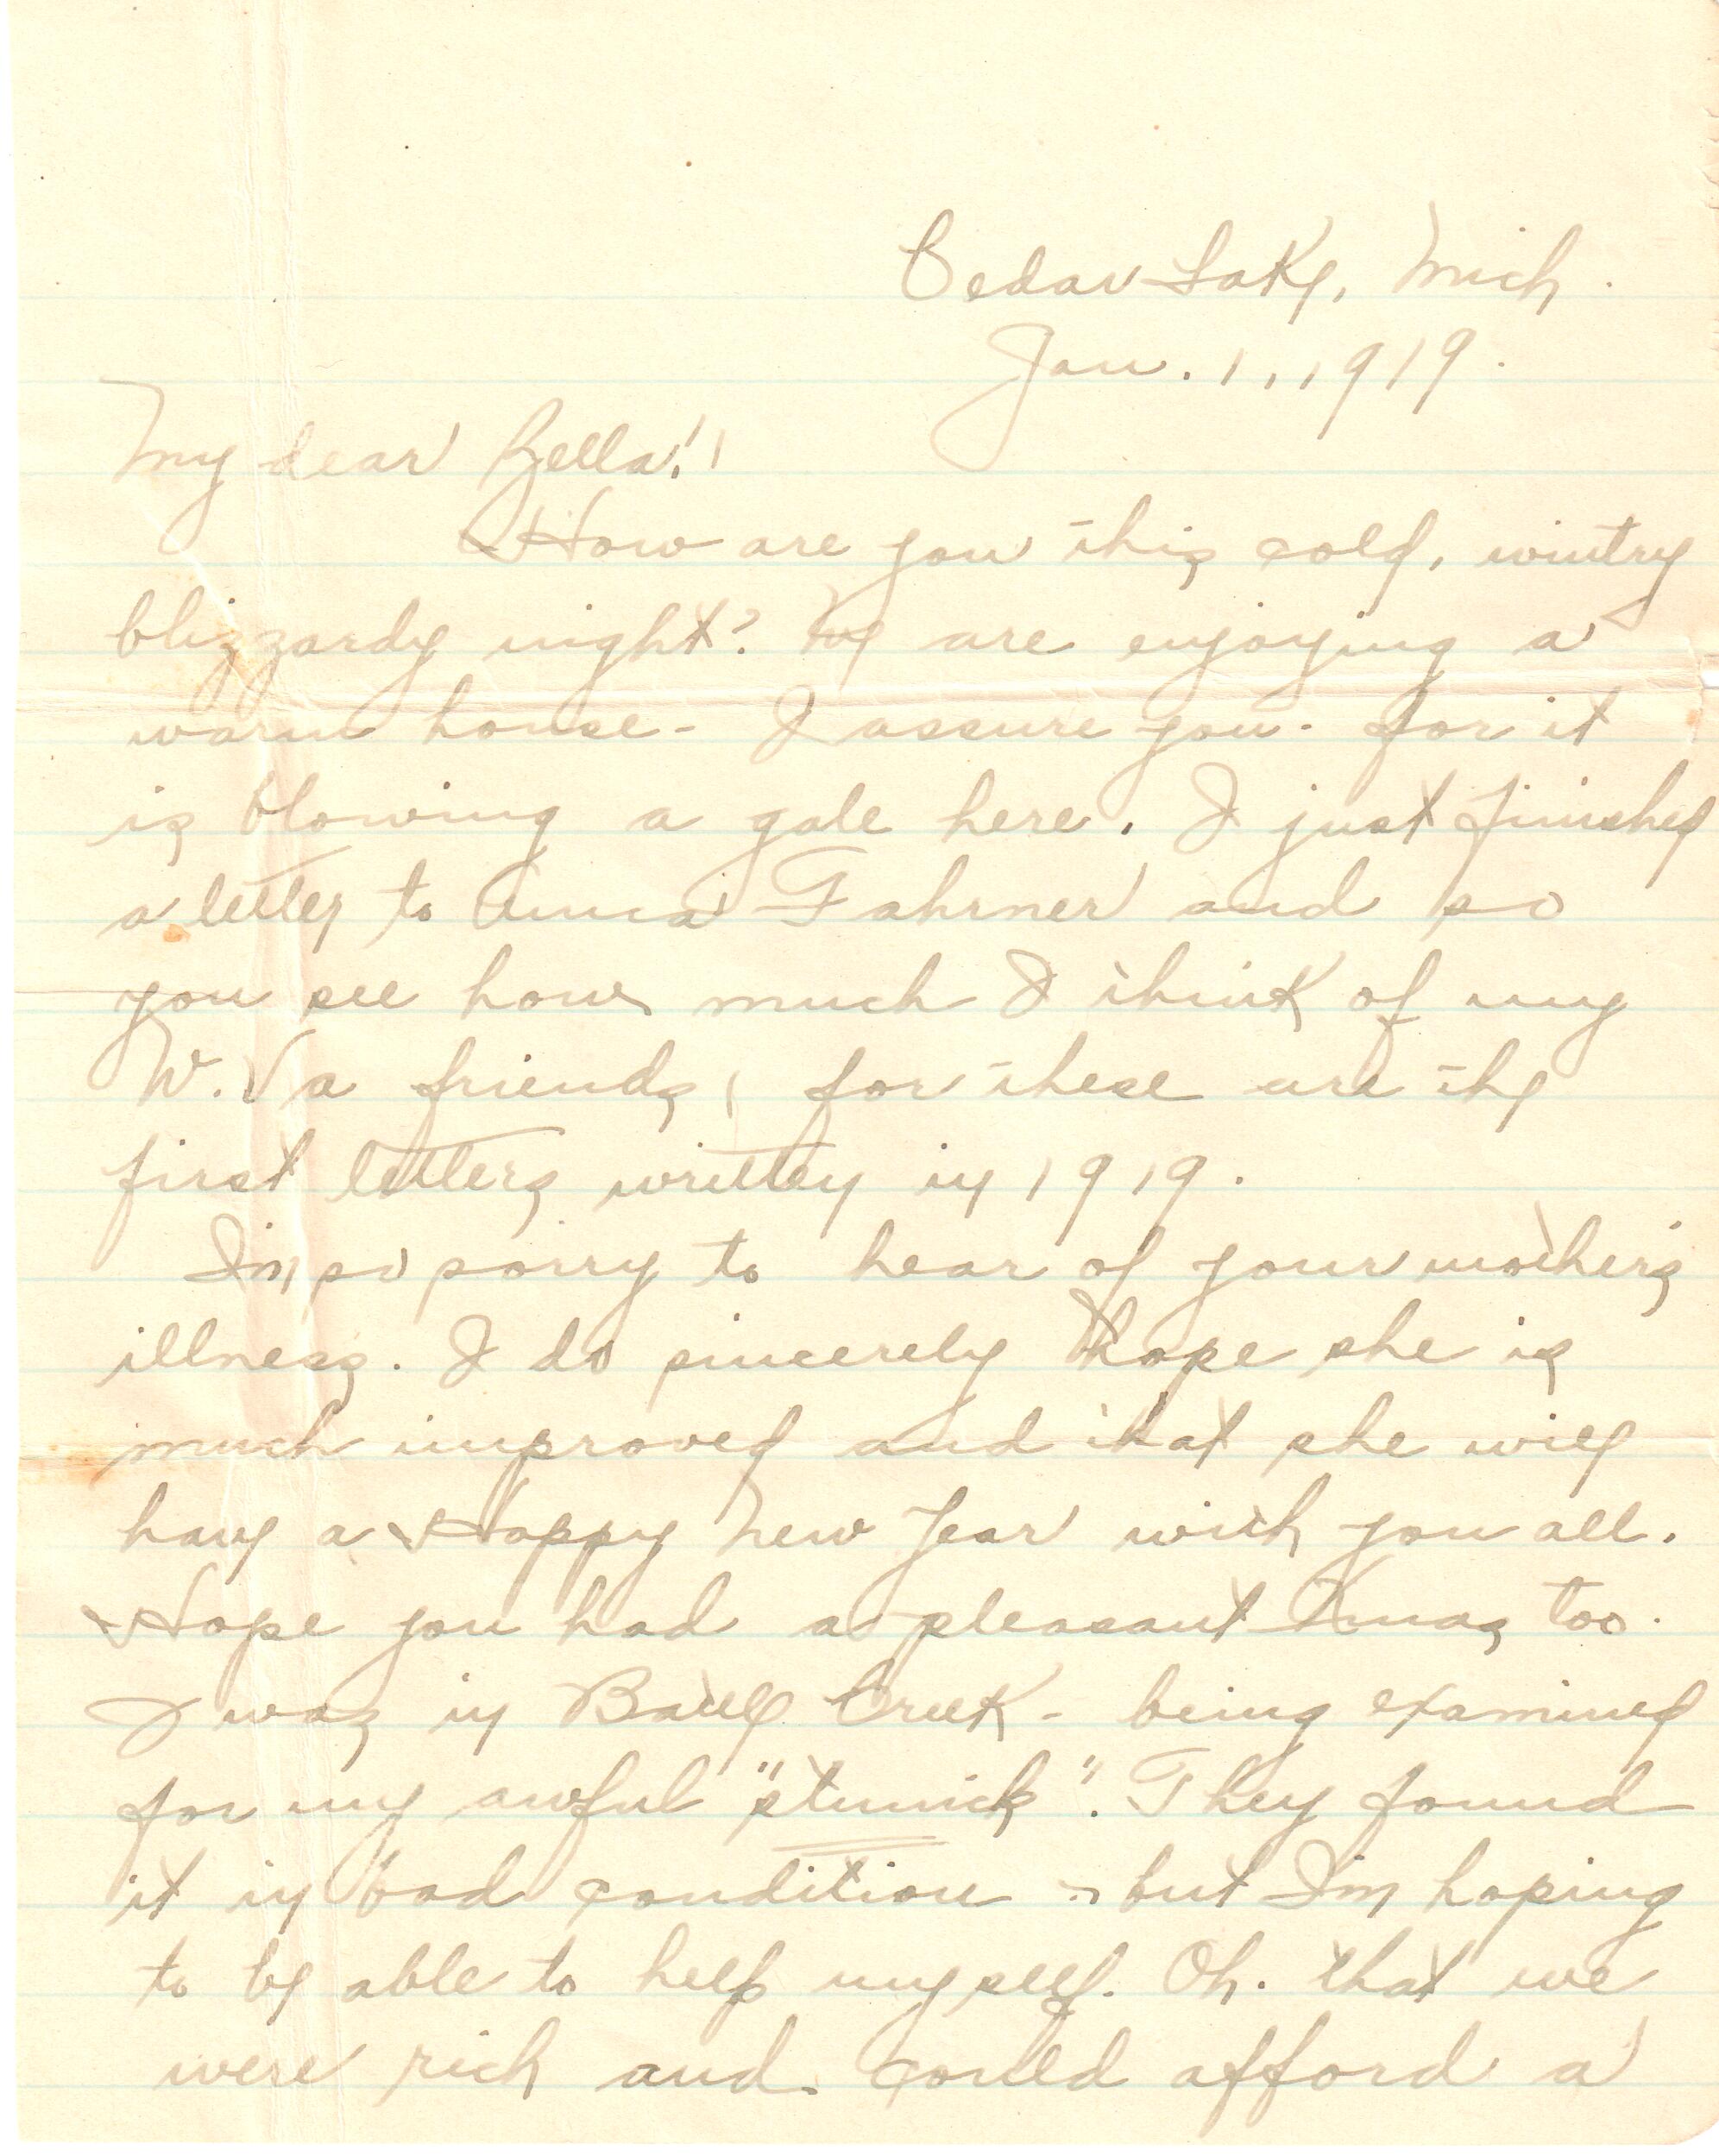 Cedar Lake, Mich.
Jan. 1, 1919.
My dear Zella!!
How are you this cold, wintry
blizzardy night? We are enjoying a
warm house - I assure you - for it
is blowing a gale here. I just finished
a letter to Anna Fahrner and so
you see how much I think of my
W. Va friends, for these are the
first letters written in 1919.
I'm so sorry to hear of your mother's
illness. I do sincerely hope she is
much improved and that she will
have a Happy New Year with you all.
Hope you had a pleasant Xmas too.
I was in Battle Creek - being examined
for my awful "stumick". They found
it in bad condition - but I'm hoping
to be able to help myself. Oh. that we
were rich and could afford a